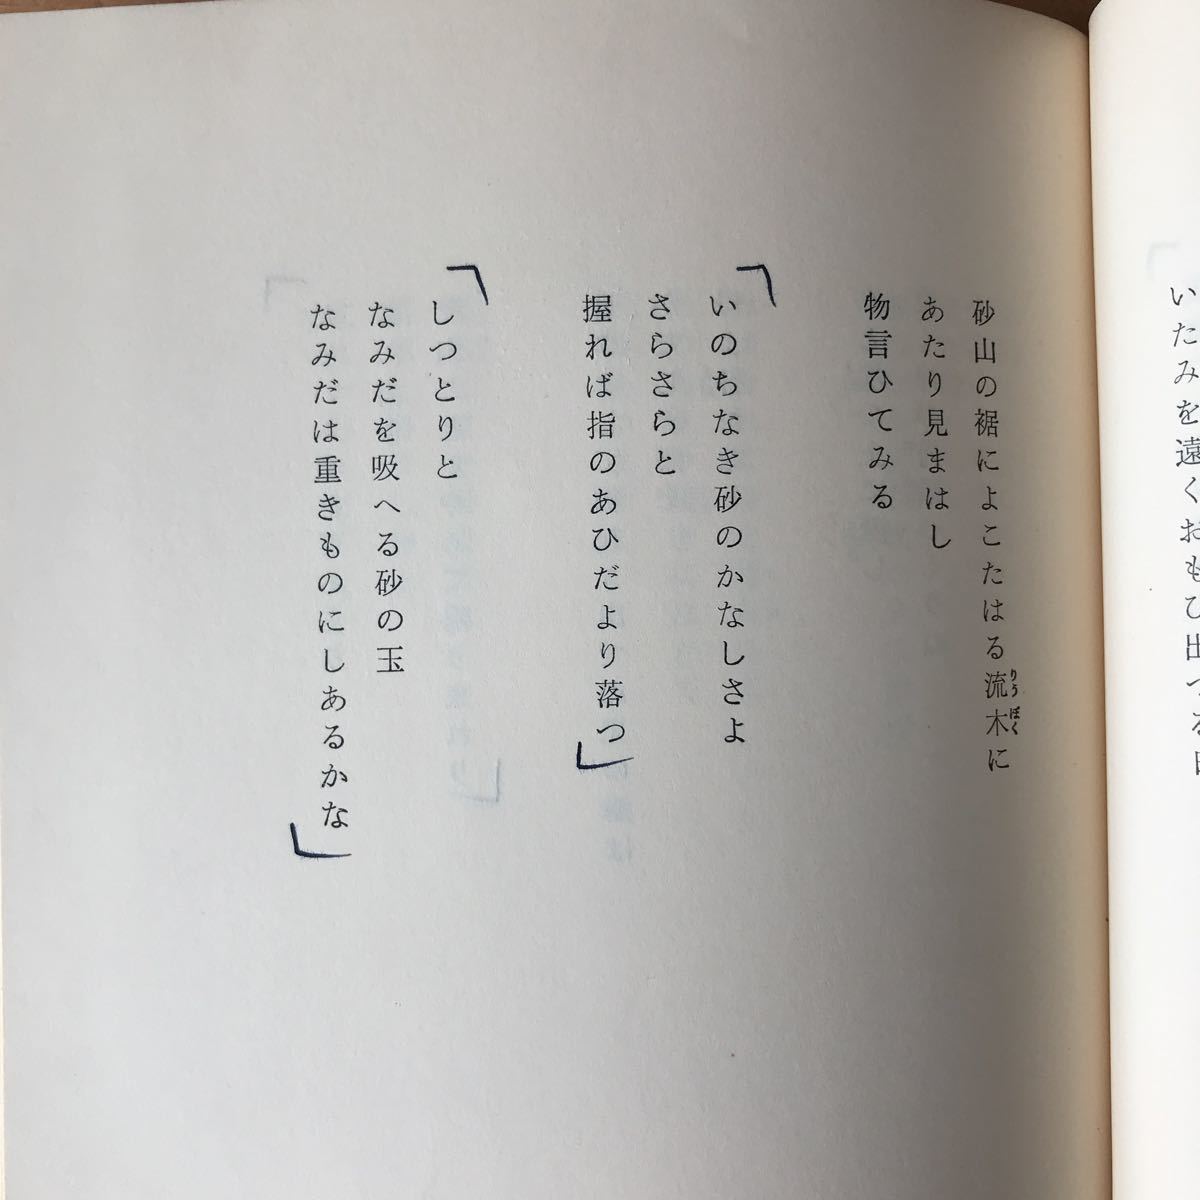 いたみを遠くおもひ出づる日
砂山の裾によこたはる流木に
りうぼく
あたり見まはし
物言ひてみる
いのちなき砂のかなしさよ
さらさらと
握れば指のあひだより落つ
しつとりと
なみだを吸へる砂の玉
なみだは重きものにしあるかな